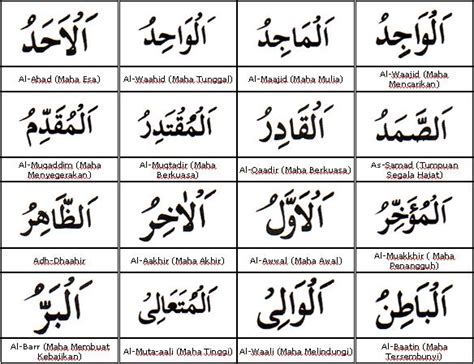 اَلْوَاجِدُ
Al-Waajid (Maha
Mencarikan)
اَلْمَاجِدُ
Al-Maajid (Maha Mulia)
اَلْوَاحِدُ
Al-Waahid (Maha Tunggal)
اَلْاَحَدُ
Al-Ahad (Maha Esa)
اَلصَّمَدُ
As-Samad (Tumpuan
Segala Hajat)
اَلْقَادِرُ
Al-Qaadir (Maha Berkuasa)
اَلْمُقْتَدِرُ
Al-Muqtadir (Maha
Berkuasa)
اَلْمُقَدِّمُ
Al-Muqaddim (Maha
Menyegerakan)
اَلْمُؤَخِّرُ
Al-Muakkhir ( Maha
Penangguh)
اَلْاَوَّلُ
Al-Awwal (Maha Awal)
اَلْاٰخِرُ
Al-Aakhir (Maha Akhir)
اَلظَّاهِرُ
Adh-Dhaahir
اَلْبَاطِنُ
Al-Baatin (Maha
Tersembunyi)
اَلْوَالِى
Al-Waali (Maha Melindungi)
اَلْمُتَعَالِى
Al-Muta-aali (Maha Tinggi)
اَلْبَرُّ
Al-Barr (Maha Membuat
Kebajikan)